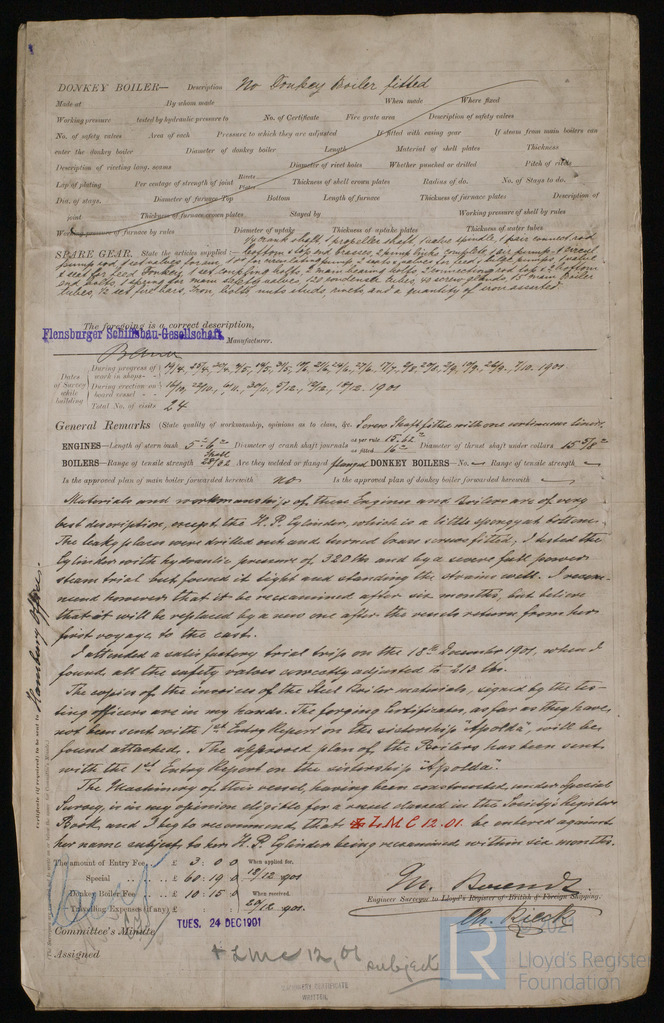 DONKEY BOILER— Description No Donkey Boiler fitted
Made at By whom made When made Where fixed
Working pressure tested by hydraulic pressure to No. of Certificate Fire grate area Description of safety valves
No. of safety valves Area of each Pressure to which they are adjusted If fitted with easing gear If steam from main boilers can
enter the donkey boiler Diameter of donkey boiler Length Material of shell plates Thickness
Description of riveting long. seams Diameter of rivet holes Whether punched or drilled Pitch of rivets
Lap of plating Per centage of strength of joint Rivets Plates Thickness of shell crown plates Radius of do. No. of Stays to do.
Dia. of stays. Diameter of furnace Top Bottom Length of furnace Thickness of furnace plates Description of
joint Thickness of furnace crown plates Stayed by Working pressure of shell by rules
Working pressure of furnace by rules Diameter of uptake Thickness of uptake plates Thickness of water tubes
SPARE GEAR. State the articles supplied:— 1/2 crank shaft, 1 propeller shaft, 1 valve spindle,
bottom & top end brasses,
& seat for feed Donkey, 1 set coupling bolts, 2 main bearing bolts, 2 connecting rod top & 2 bottom
end bolts, 1 spring for main safety valve,
tubes, 1/2 set fire bars, Iron, bolts, nuts, studs, and a quantity of iron assorted.
The foregoing is a correct description,
Flensburger Schiffsbau-Gesellschaft Manufacturer.
Dates of Survey while building
During progress of work in shops— 1901
During erection on board vessel— 1901
Total No. of visits 24
General Remarks (State quality of workmanship, opinions as to class, &c. Screw Shaft fitted with one continuous liner.
ENGINES—Length of stern bush 5'-6" Diameter of crank shaft journals as per rule 15.62" as fitted 16" Diameter of thrust shaft under collars 15 5/8"
BOILERS—Range of tensile strength Shell 28/32 Are they welded or flanged flanged DONKEY BOILERS—No. Range of tensile strength
Is the approved plan of main boiler forwarded herewith no Is the approved plan of donkey boiler forwarded herewith
Materials and workmanship of these Engines and Boilers are of very
best description, except the H.P. Cylinder, which is a little spongy at bottom.
The leaky places were drilled out and turned brass screws fitted, I tested the
Cylinder with hydraulic pressure of 320 lbs and by a severe full power
steam trial but found it tight and standing the strains well. I recom-
mend however that it be reexamined after six months, but believe
that it will be replaced by a new one after the vessels return from her
first voyage, to the east.
I attended a satisfactory trial trip on the 18th December 1901, when I
found all the safety valves correctly adjusted to 213 lbs.
The copies of the invoices of the Steel Boiler materials, signed by the tes-
ting officers are in my hands. The forging Certificates, as far as they have
not been sent with 1st Entry Report on the sistership "Apolda", will be
found attached. The approved plan of the Boilers has been sent
with the 1st Entry Report on the sistership "Apolda".
The Machinery of this vessel, having been constructed under Special
Survey, is in my opinion eligible for a vessel classed in the Society's Register
Book, and I beg to recommend, that LMC 12.01 be entered against
her name subject to her H.P. Cylinder being reexamined within six months.
Hamburg Office.
Certificate (if required) to be sent to
The amount of Entry Fee £ 3 : 0 0 When applied for.
Special £ 60 : 19 0 18/12 1901
Donkey Boiler Fee £ 10 : 15 0 When received.
Travelling Expenses (if any) £ 1901
Engineer Surveyor to Lloyd's Register of British & Foreign Shipping.
Committee's Minute TUES. 24 DEC 1901
Assigned + LMC 12,01 subject
WRITTEN.
© 2021
LR
Lloyd's Register
Foundation